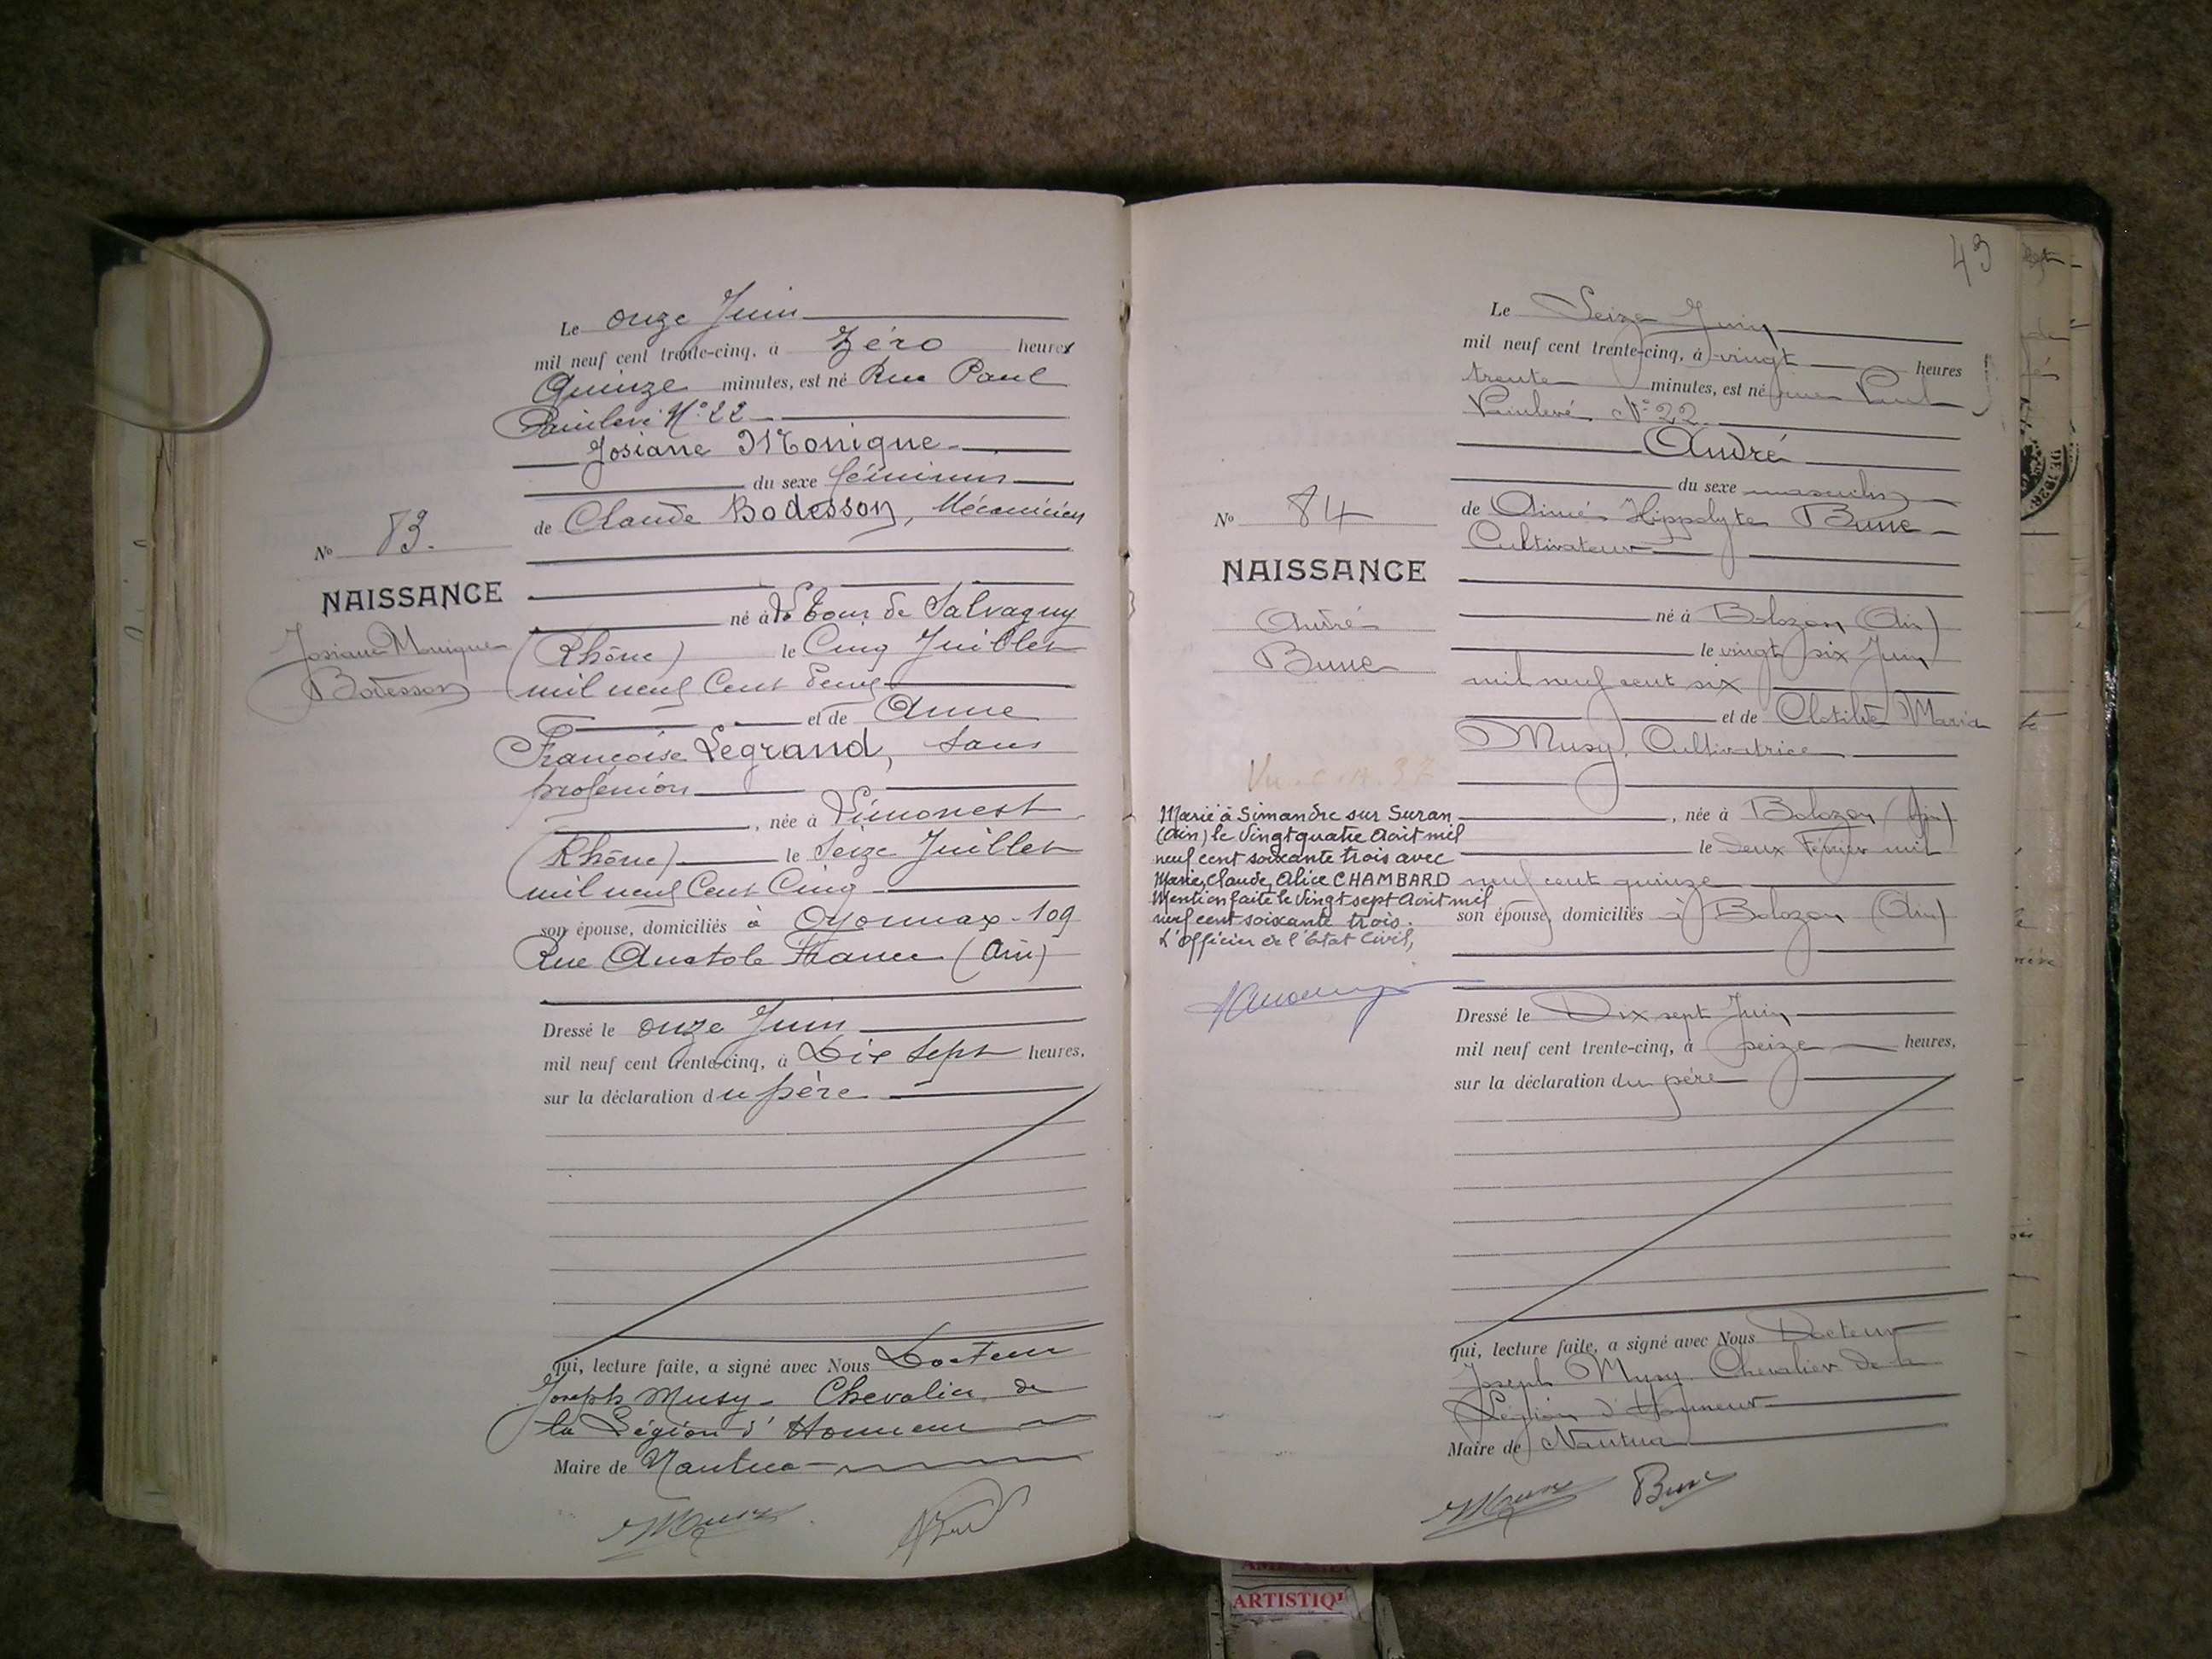 Le onze Juin
mil neuf cent trente-cinq, à Zéro heures
Quinze minutes, est né Rue Paul
Painlevé N° 22
Josiane Monique
du sexe féminin
de Claude Bodesson, Mécanicien
N° 83.
NAISSANCE
Josiane Monique
Bodesson
né à la Tour de Salvagny
(Rhône) le Cinq Juillet
mil neuf Cent deux
et de Anne
Françoise Legrand, sans
profession
, née à Limonest
(Rhône) le Seize Juillet
mil neuf Cent Cinq
son épouse, domiciliés à Oyonnax - 109
Rue Anatole France (Ain)
Dressé le onze Juin
mil neuf cent trente-cinq, à Dix sept heures,
sur la déclaration du père
qui, lecture faite, a signé avec Nous Docteur
Joseph Musy - Chevalier de
la Légion d'Honneur
Maire de Nantua
43
Le Seize Juin
mil neuf cent trente-cinq, à vingt heures
trente minutes, est né rue Paul
Painlevé N° 22
André
du sexe masculin
de Aimé Hippolyte Bune
Cultivateur
N° 84
NAISSANCE
André
Bune
né à Bolozon (Ain)
le vingt six Juin
mil neuf cent six
et de Clotilde Maria
Musy, Cultivatrice
, née à Bolozon (Ain)
le deux Février mil
neuf cent quinze
son épouse, domiciliés à Bolozon (Ain)
Marié à Simandre sur Suran
(Ain) le Vingt quatre Août mil
neuf cent soixante trois avec
Marie, Claude, Alice CHAMBARD
Mention faite le Vingt sept Août mil
neuf cent soixante trois.
L'officier de l'Etat Civil,
Dressé le Dix sept Juin
mil neuf cent trente-cinq, à seize heures,
sur la déclaration du père
qui, lecture faite, a signé avec Nous Docteur
Joseph Musy. Chevalier de la
Légion d'Honneur
Maire de Nantua
Bune
ARTISTIQ